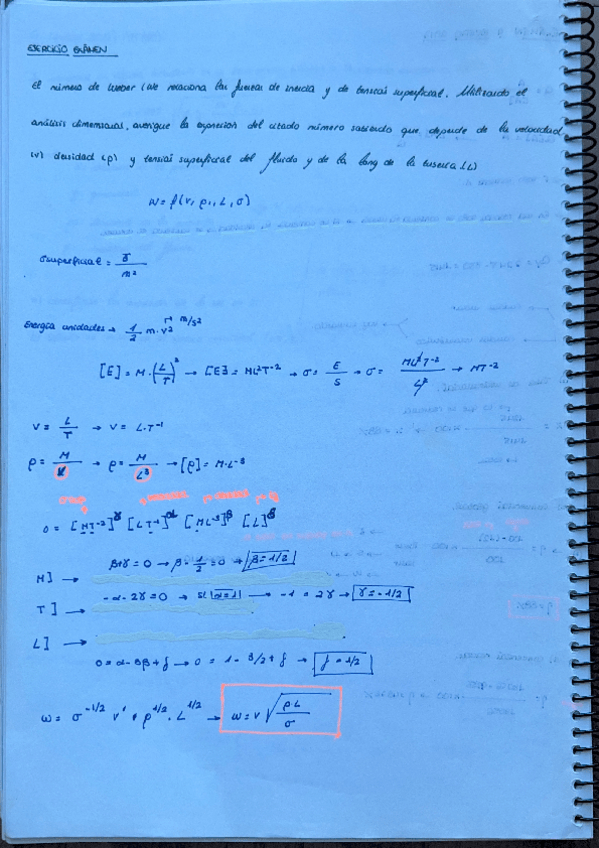 EJERCICIO EXÁMEN
El número de Weber (We relaciona las fuerzas de inercia y de tensión superficial. Utilizando el
análisis dimensional, averigue la expresión del citado número sabiendo que depende de la velocidad
(v) densidad (ρ) y tensión superficial del fluido y de la long de la tubería (L)
W = f(v, ρ, L, σ)
σ superficial = J / m²
Energía unidades → 1/2 m · v² m/s²
[E] = M · (L/T)² → [E] = ML²T⁻² → σ = E/S → σ = ML²T⁻² / L² → MT⁻²
V = L/T → V = L·T⁻¹
ρ = M/V → ρ = M/L³ → [ρ] = M·L⁻³
0 = [MT⁻²]^γ [LT⁻¹]^α [ML⁻³]^β [L]^δ
β+γ = 0 → β - 1/2 = 0 → β = 1/2
M] →
-α - 2γ = 0 → si α = 1 → -1 = 2γ → γ = -1/2
T] →
L] →
0 = α - 3β + f → 0 = 1 - 3/2 + f → f = 1/2
W = σ^-1/2 v¹ · ρ^1/2 · L^1/2 → W = v √(ρL/σ)